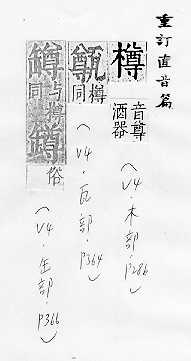 重訂直音篇
樽 音尊 酒器
（V4．木部．P286）
甑 樽同
（V4．瓦部．P364）
罇 与樽同 鐏 俗
（V4．缶部．P366）